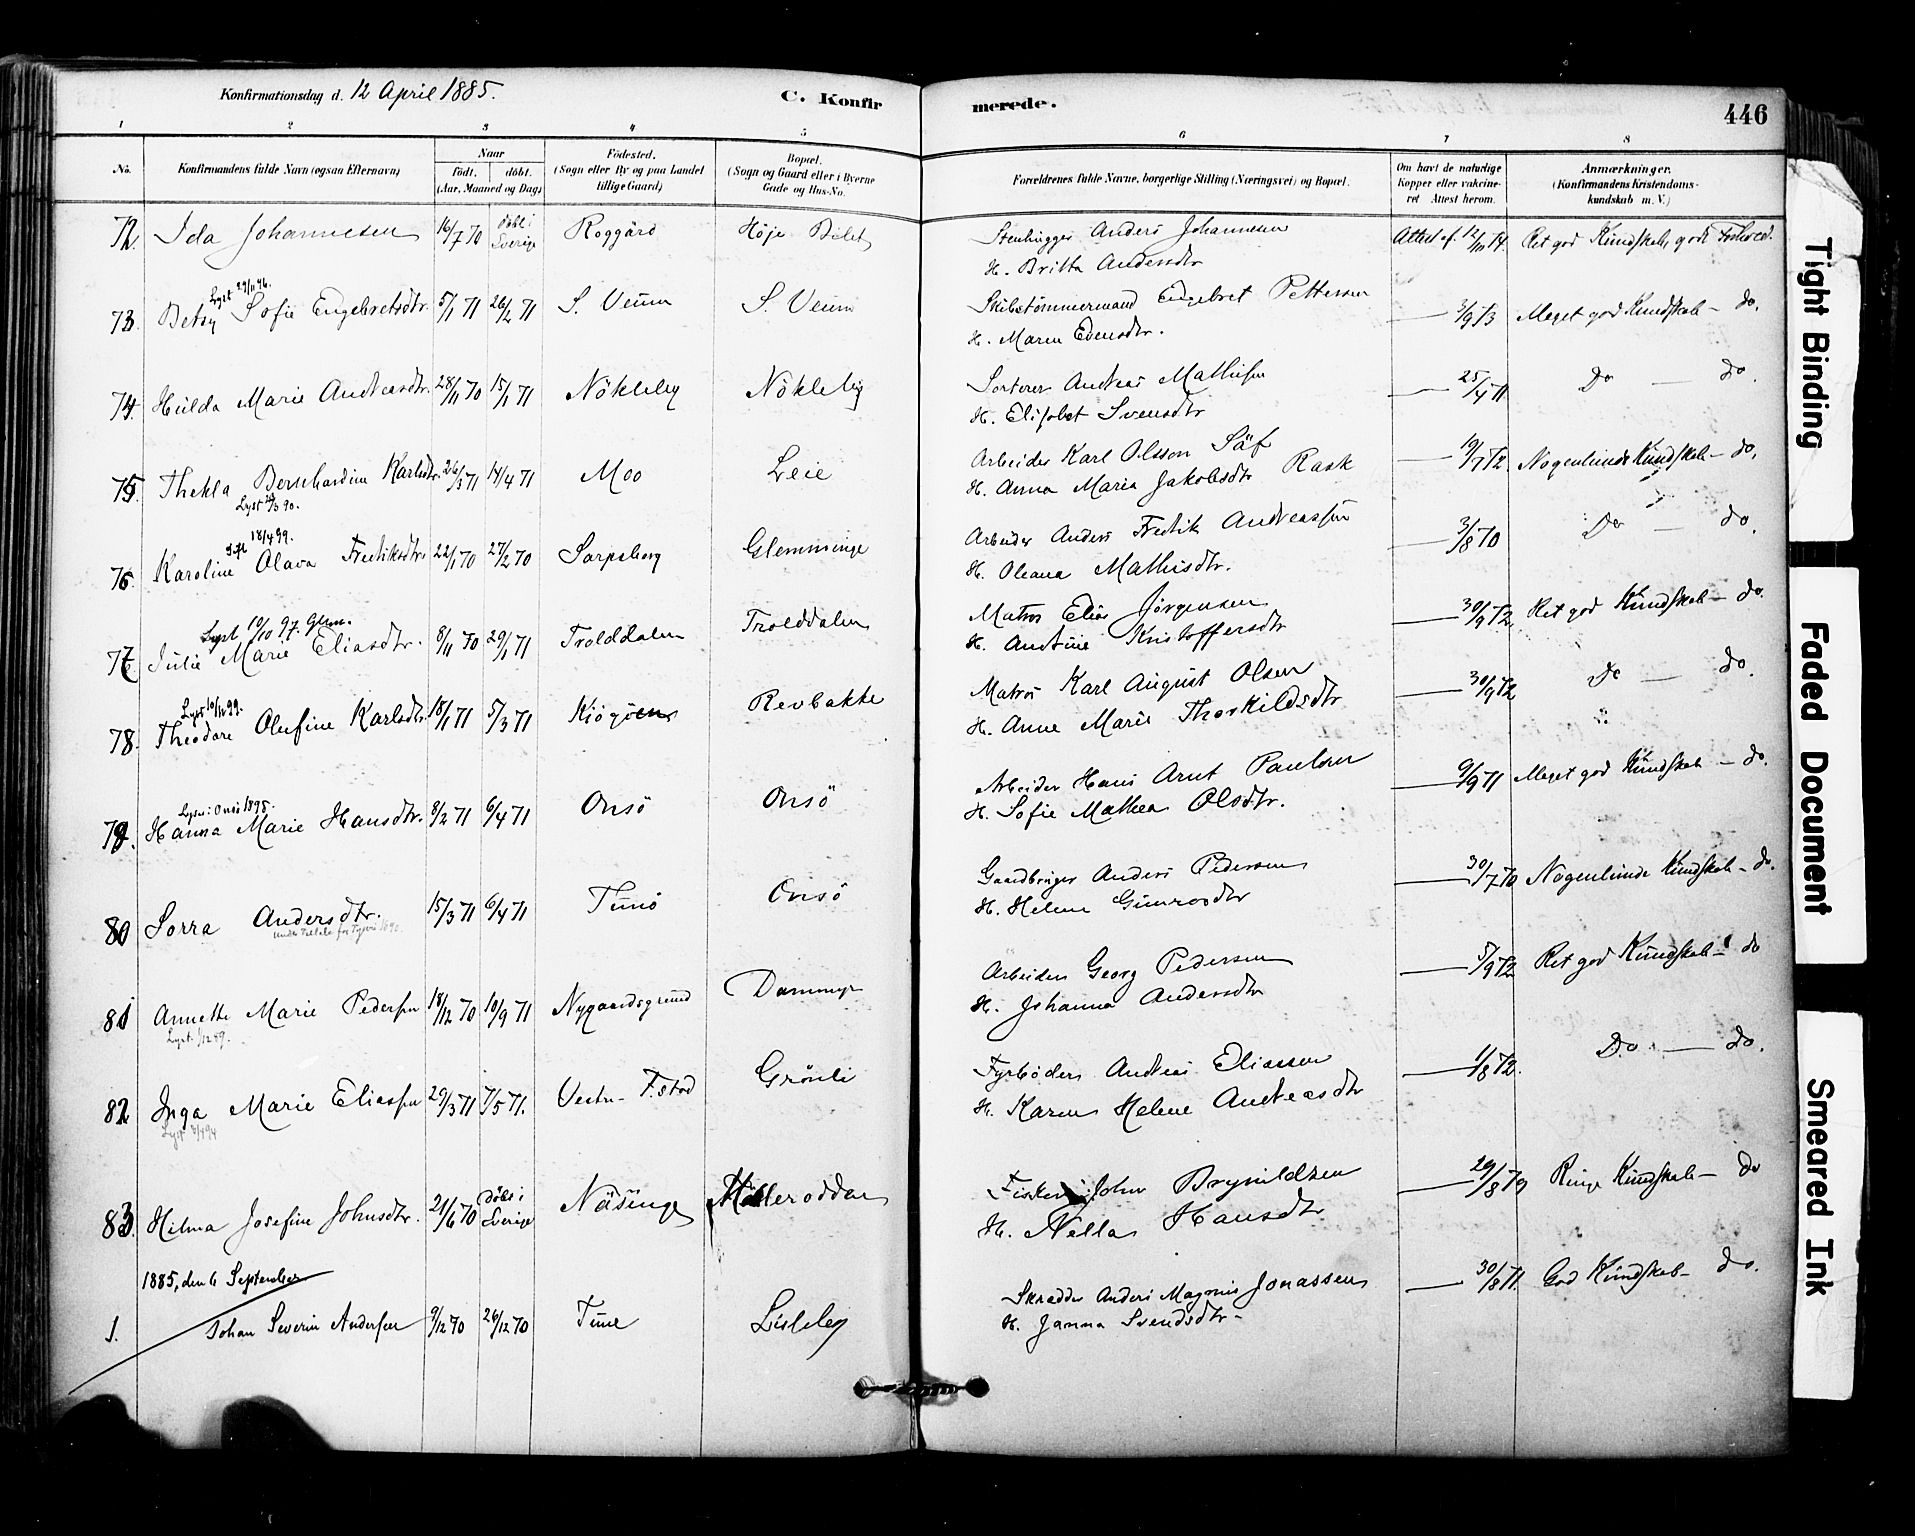 Konfirmationsdag d. 12 April 1885.
C. Konfirmerede.
446
1 2 3 4 5 6 7 8
No.
Konfirmandens fulde Navn (ogsaa Efternavn)
Naar
født. døbt.
(Aar, Maaned og Dag)
Fødested.
(Sogn eller By og paa Landet
tillige Gaard)
Bopæl.
(Sogn og Gaard eller i Byerne
Gade og Hus-No.
Forældrenes fulde Navne, borgerlige Stilling (Næringsvei) og Bopæl.
Om havt de naturlige
Kopper eller vakcine-
ret Attest herom.
Anmærkninger.
(Konfirmandens Kristendoms-
kundskab m. V.)
72. Ida Johannesen 16/7 70 døbt i Sverige Roggård Høje Stenhugger Anders Johannesen Attest af 12/ 74. Ret god Kundskab, godt Forhold.
H. Britta Andersdtr
Lyst 29/11 96.
73. Betsy Sofie Engebretsdtr. 5/1 71 26/2 71 S. Veum S. Veum Skibstømmermand Engebret Pettersen — 3/9 73 Meget god Kundskab – do.
H. Maren Evensdtr.
74. Hulda Marie Andreasdtr. 28/11 70 15/1 71 Nökleby Nökleby Sorterer Andreas Mathisen — 25/4 71 Do — do.
H. Elisabet Svensdtr
75. Thekla Bernhardine Karlsdtr. 26/3 71 14/4 71 Moo Leie Arbeider Karl Olsson Säf — 19/7 72 Nogenlunde Kundskab – do.
Lyst /3 90.
H. Anna Maria Jakobsdtr Rask
18/4 99.
76. Karoline Olava Fredriksdtr. 22/1 70 27/2 70 Sarpsborg Glemminge Arbeider Anders Fredrik Andreassen — 3/8 70 Do — do.
H. Oleana Mathisdtr.
Lyst 10/10 97. Glem.
77. Julie Marie Eliasdtr. 8/11 70 29/1 71 Trolddalen Trolddalen Matros Elias Jörgensen — 30/9 72 Ret god Kundskab – do.
H. Antine Kristoffersdtr
Lyst 10/12 99.
78. Theodore Olufine Karlsdtr. 18/1 71 5/3 71 Kjögöen Revbakke Matros Karl August Olsen — 30/9 72 Do — do.
H. Anne Marie Thorkildsdtr
Lyst i Onsö 1895.
79. Hanna Marie Hansdtr. 8/2 71 6/4 71 Onsö Onsö Arbeider Hans Arnt Paulsen — 9/9 71 Meget god Kundskab – do.
H. Sofie Mathea Olsdtr.
80 Sorra Andersdtr. 15/3 71 6/4 71 Tunö Onsö Gaardbruger Anders Pedersen — 30/7 70 Nogenlunde Kundskab – do.
H. Helene Gunrosdtr
81 Annette Marie Pedersen 18/12 70 10/9 71 Nygaardsgrund Dammyr Arbeider Georg Pedersen — 5/9 72 Ret god Kundskab – do
H. Johanna Andersdtr
82 Inga Marie Eliassen 29/3 71 7/5 71. Vestre F.stad Grönli Fyrböder Andreas Eliassen — 1/8 72. Do — do.
H. Karen Helene Andreasdtr
83. Hilma Josefine Johnsdtr. 21/6 70 Döbt i Sverige Näsinge Möllerodden Fisker John Brynildsen — 29/8 79 Ringe Kundskab – do
H. Nella Hansdtr
1885, den 6 September
1. Johan Severin Andersen 9/12 70 26/12 70 Tune Lisleby Skrædder Anders Magnus Jonassen — 30/8 71. God Kundskab – do.
H. Janna Svendsdtr.
Tight Binding
Faded Document
Smeared Ink